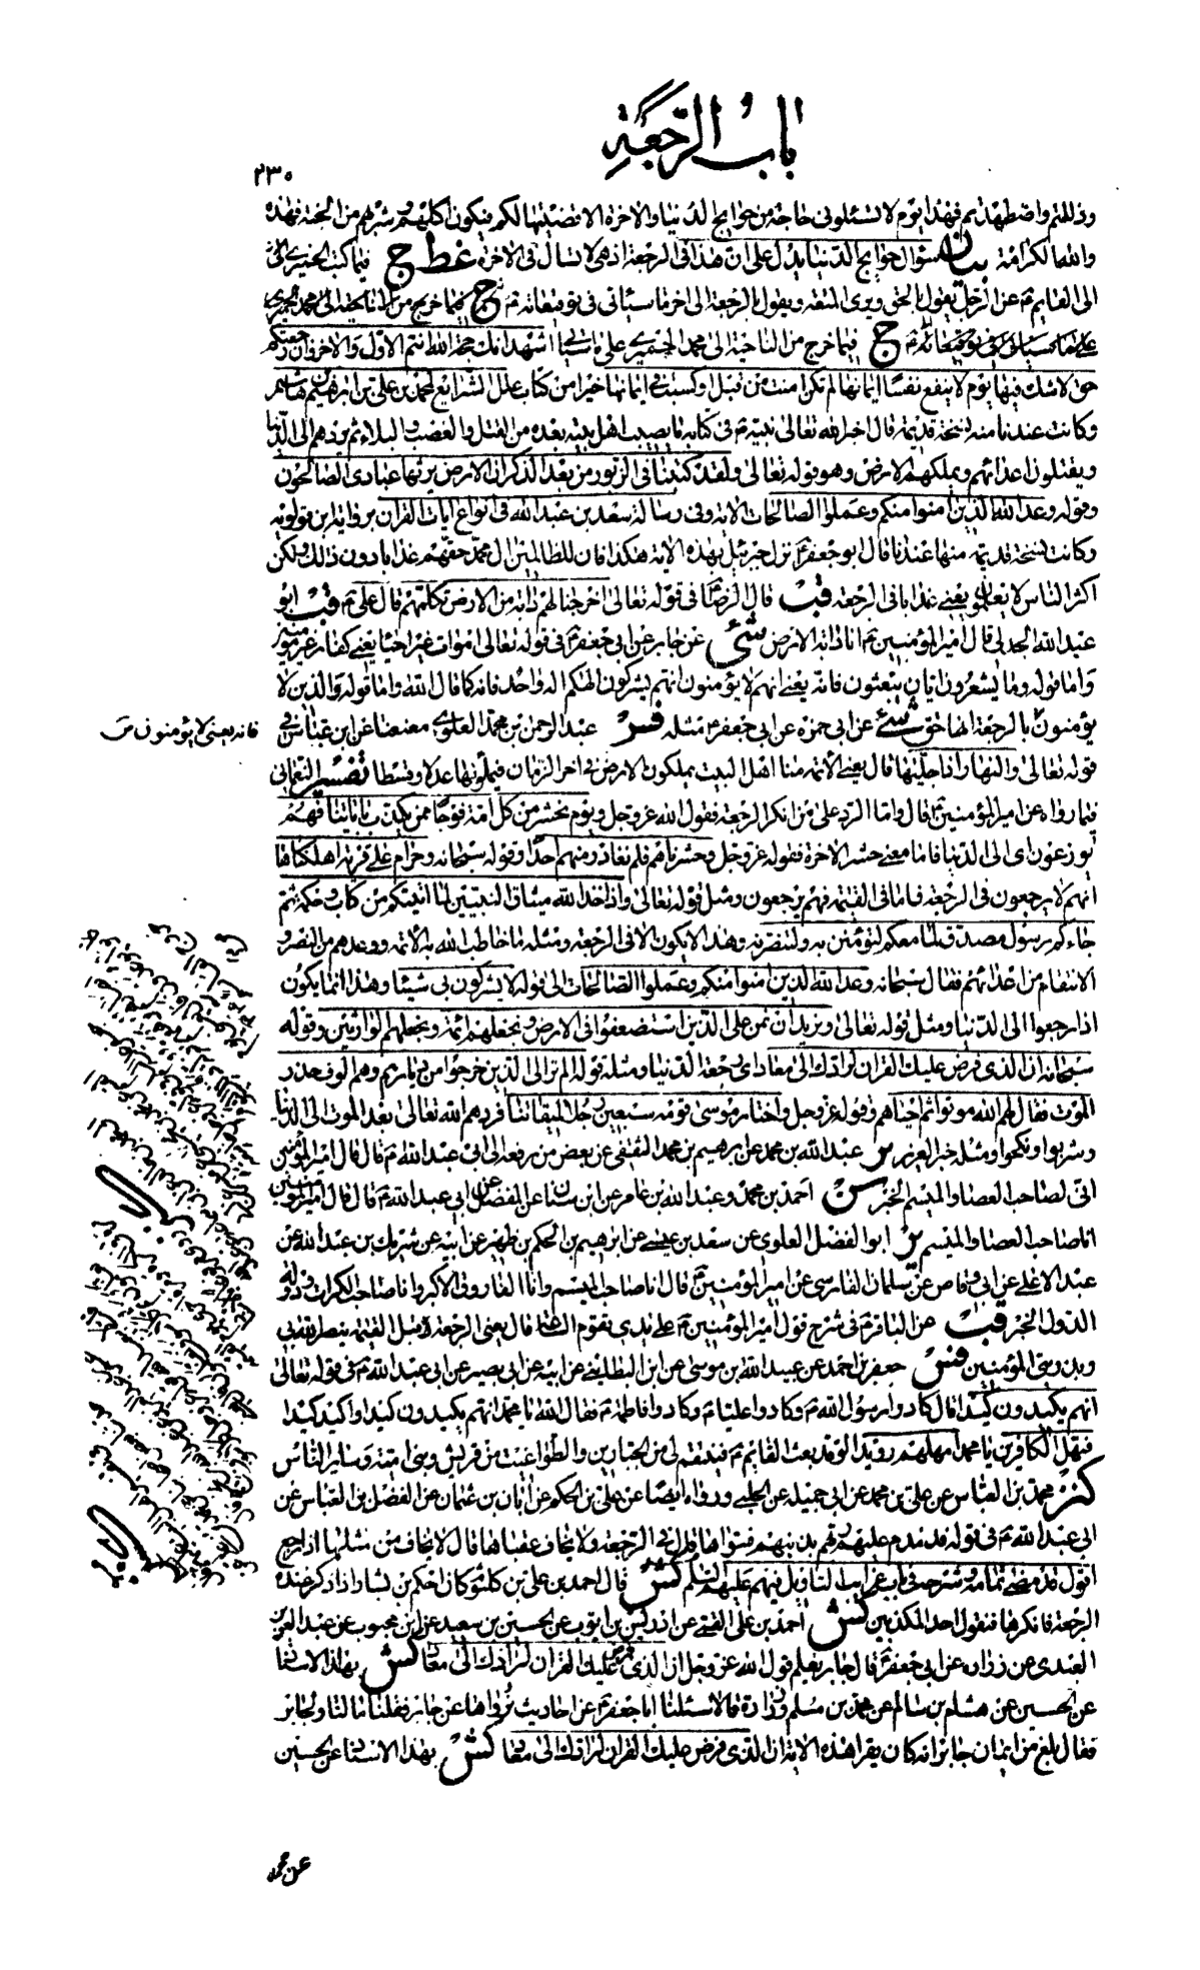 باب الرّجعة
٢٣٠
وذللتم واضطهدتم فهذا يوم لا تسئلونى حاجة من حوايج الدنيا والاخرة الا قضيتها لكم فيكون اكلهم وشربهم من الجنة فهذه
والله الكرامة بيان سؤال حوايج الدنيا يدل على ان هذا فى الرجعة اذ هى لا تسال فى الاخرة غط ج فيما كتب الحميرى
الى القايم ع عن الرجل يقول بالحق ويرى المتعة ويقول بالرجعة الى اخر ما سياتى فى توقيعاته ع ج فيما خرج من الناحية الى محمد الحميرى
على ما سياتى فى توقيعاته ع ج فيما خرج من الناحية الى محمد الحميرى على ما سياتى اشهد انك حجة الله انتم الاول والاخر وان رجعتكم
حق لا شك فيها يوم لا ينفع نفسا ايمانها لم تكن امنت من قبل او كسبت فى ايمانها خيرا من كتاب علل الشرائع لمحمد بن على بن ابرهيم بن هاشم
وكانت عندنا منه نسخة قديمة قال اخبر الله تعالى نبيه ص فى كتابه ما يصيب اهل بيته بعده من القتل والغصب والبلاء ثم يردهم الى الدنيا
ويقتلون اعدائهم ويملكهم الارض وهو قوله تعالى ولقد كتبنا فى الزبور من بعد الذكر ان الارض يرثها عبادى الصالحون
وقوله وعد الله الذين امنوا منكم وعملوا الصالحات الاية وفى رسالة سعد بن عبد الله فى انواع ايات القران برواية ابن قولويه
وكانت نسخة قديمة منها عندنا قال ابو جعفر ع نزل جبرئيل بهذه الاية هكذا فان للظالمين ال محمد حقهم عذابا دون ذلك ولكن
اكثر الناس لا يعلمون يعنى عذابا فى الرجعة قب قال الرضا ع فى قوله تعالى اخرجنا لهم دابة من الارض تكلمهم قال على ع قب ابو
عبد الله الجدلى قال امير المؤمنين ع انا دابة الارض شى عن جابر عن ابى جعفر ع فى قوله تعالى اموات غير احيا يعنى كفار غير مؤمنين
واما قوله وما يشعرون ايان يبعثون فانه يعنى انهم لا يؤمنون انهم يشركون الهكم اله واحد فانه كما قال الله واما قوله والذين لا
يؤمنون بالرجعة انها حق شى عن ابى حمزه عن ابى جعفر ع مثله فس عبد الرحمن بن محمد العلوى معنعنا عن ابن عباس فى
فانه يعنى لا يؤمنون
قوله تعالى والنهار اذا جليها قال يعنى الائمة منا اهل البيت يملكون الارض فى اخر الزمان فيملونها عدلا وقسطا تفسير النعمانى
فيما رواه عن امير المؤمنين ع قال واما الرد على من انكر الرجعة فقول الله عز وجل ويوم نحشر من كل امة فوجا ممن يكذب باياتنا فهم
يوزعون اى الى الدنيا فاما معنى حشر الاخرة فقوله عز وجل وحشرناهم فلم نغادر منهم احدا وقوله سبحانه وحرام على قرية اهلكناها
انهم لا يرجعون فى الرجعة فاما فى القيمة فهم يرجعون ومثل قوله تعالى واذ اخذ الله ميثاق النبيين لما اتيتكم من كتاب وحكمة ثم
جاءكم رسول مصدق لما معكم لتؤمنن به ولتنصرنه وهذا لا يكون الا فى الرجعة ومثله ما خاطب الله به الائمة ووعدهم من النصر و
الانتقام من اعدائهم فقال سبحانه وعد الله الذين امنوا منكم وعملوا الصالحات الى قوله لا يشركون بى شيئا وهذا انما يكون
اذا رجعوا الى الدنيا ومثل قوله تعالى ونريد ان نمن على الذين استضعفوا فى الارض ونجعلهم ائمة ونجعلهم الوارثين وقوله
سبحانه ان الذى فرض عليك القران لرادك الى معاد اى رجعة الدنيا ومثله قوله الم تر الى الذين خرجوا من ديارهم وهم الوف حذر
الموت فقال لهم الله موتوا ثم احياهم وقوله عز وجل واختار موسى قومه سبعين رجلا لميقاتنا فردهم الله تعالى بعد الموت الى الدنيا
وشربوا ونكحوا ومثله خبر العزير ير عبد الله بن محمد عن ابرهيم بن محمد الثقفى عن بعض من رفعه الى ابى عبد الله ع قال قال امير المؤمنين
انى لصاحب العصا والميسم الخبر ير احمد بن محمد وعبد الله بن عامر عن ابن سنان عن المفضل عن ابى عبد الله ع قال قال امير المؤمنين
انا صاحب العصا والميسم ير ابو الفضل العلوى عن سعد بن عيسى عن ابرهيم بن الحكم بن ظهير عن ابيه عن شريك بن عبد الله عن
عبد الاعلى عن ابى وقاص عن سلمان الفارسى عن امير المؤمنين ع قال انا صاحب الميسم وانا الفاروق الاكبر وانا صاحب الكرات ودولة
الدول الخبر قب عن الباقر ع فى شرح قول امير المؤمنين ع على يدى تقوم الساعة قال يعنى الرجعة قبل القيمة ينصر الله بى
وبذريتى المؤمنين فس جعفر بن احمد عن عبيد الله بن موسى عن ابن البطاينى عن ابيه عن ابى بصير عن ابى عبد الله ع فى قوله تعالى
انهم يكيدون كيدا قال كادوا رسول الله ص وكادوا عليا ع وكادوا فاطمة ع فقال الله يا محمد انهم يكيدون كيدا واكيد كيدا
فمهل الكافرين يا محمد امهلهم رويدا لو قد بعث القائم ع فينتقم لى من الجبارين والطواغيت من قريش وبنى امية وساير الناس
كنز محمد بن العباس عن على بن محمد عن ابى جميلة عن الحلبى ورواه ايضا عن على بن الحكم عن ابان بن عثمان عن الفضل بن العباس عن
ابى عبد الله ع فى قوله فدمدم عليهم ربهم بذنبهم فسواها قال فى الرجعة ولا يخاف عقباها قال لا يخاف من مثلها اذا رجع
اقول قد مضى تمامه وشرحه فى باب غرايب التاويل فيهم عليهم السلم كش قال احمد بن على بن كلثوم كان احكم بن بشار اذا ذكر عنده
الرجعة فانكرها فنقول احد المكذبين كش احمد بن على القمى عن ادريس بن ايوب عن الحسين بن سعيد عن ابن محبوب عن عبد العزيز
العبدى عن زرارة عن ابى جعفر ع قال جابر يعلم قول الله عز وجل ان الذى فرض عليك القران لرادك الى معاد كش بهذا الاسناد
عن الحسين عن هشام بن سالم عن محمد بن مسلم وزرارة قالا سئلنا ابا جعفر ع عن احاديث نرويها عن جابر فقلنا ما لنا ولجابر
فقال بلغ من ايمان جابر انه كان يقرا هذه الاية ان الذى فرض عليك القران لرادك الى معاد كش بهذا الاسناد عن الحسين
عن محمد